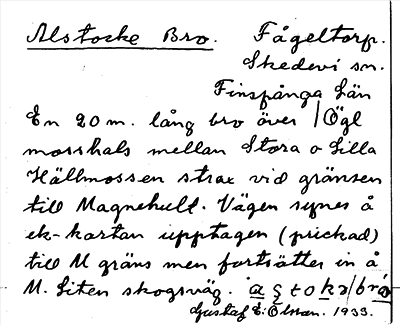 Alstocke Bro. Fågeltorp.
Skedevi sn.
Finspånga Län
En 20 m. lång bro över /Ögl
mosshals mellan Stora o Lilla
Hällmossen strax vid gränsen
till Magnehult. Vägen synes å
ek-kartan upptagen (prickad)
till M gräns men fortsätter in å
M. Liten skogsväg.
Gustaf E:Olsson. 1933.